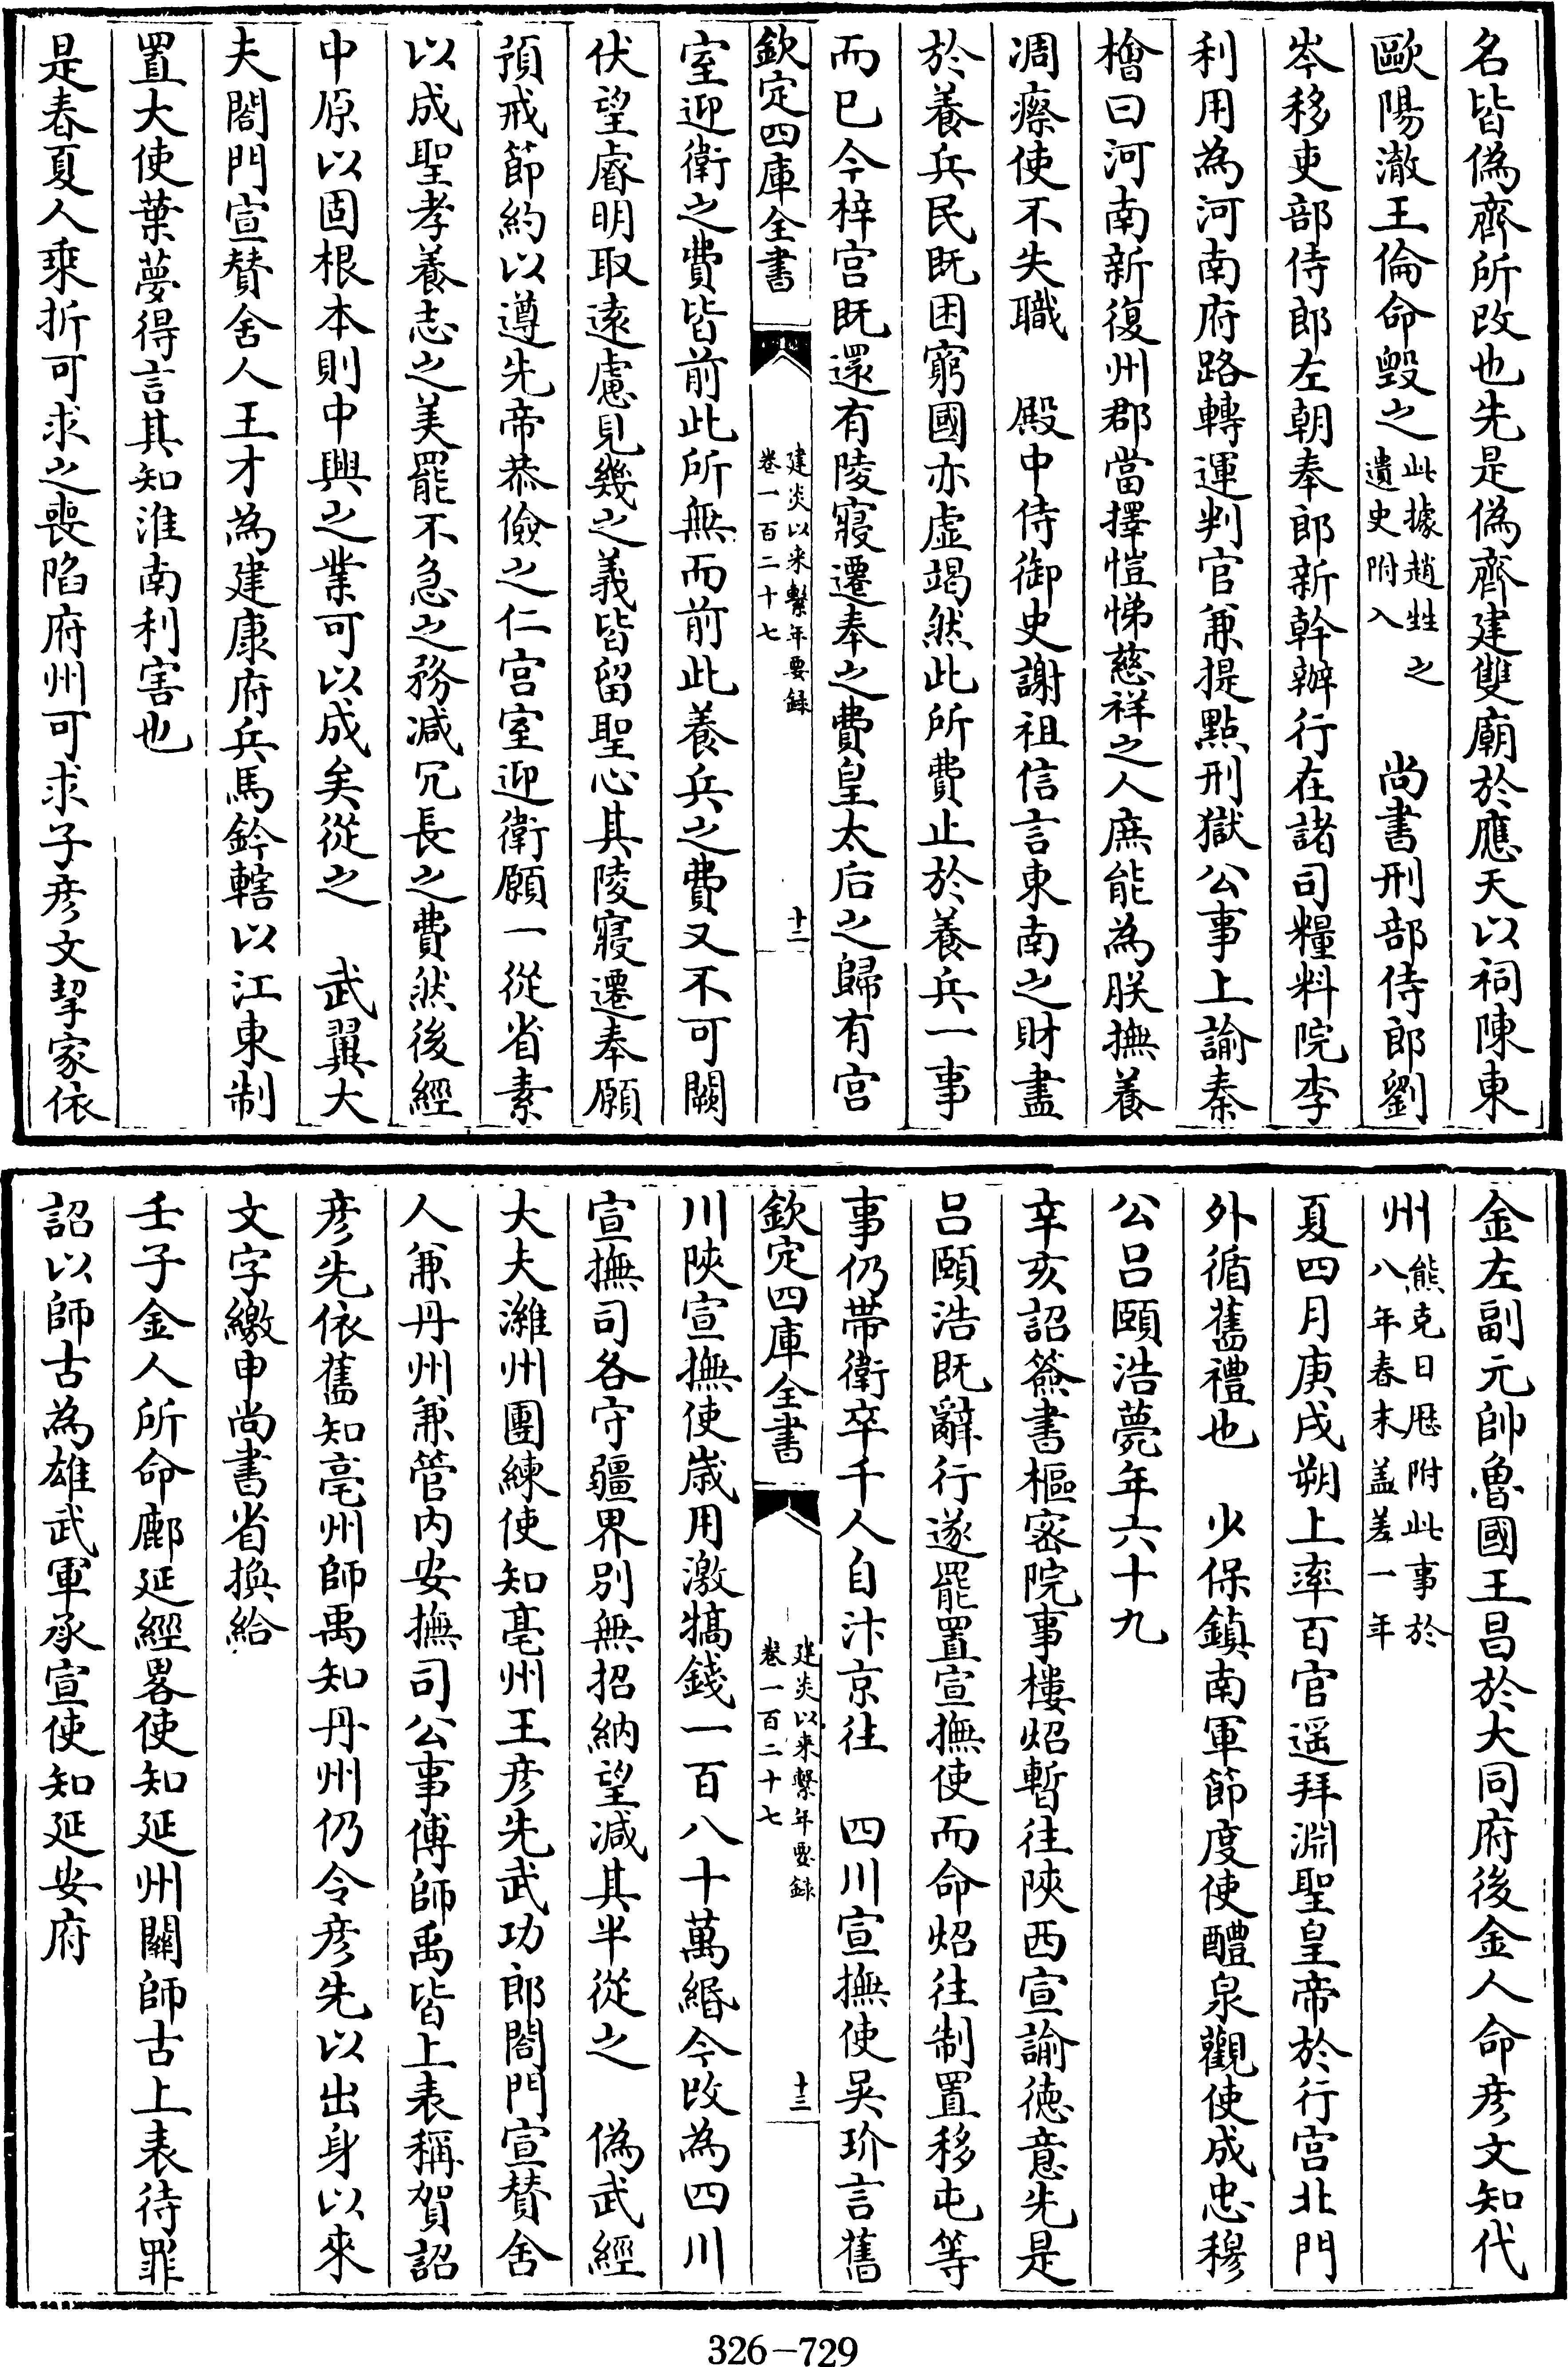 名皆偽齊所改也先是偽齊建雙廟於應天以祠陳東
歐陽澈王倫命毀之此據趙甡之遺史附入　尚書刑部侍郎劉
岑移吏部侍郎左朝奉郎新幹辦行在諸司糧料院李
利用為河南府路轉運判官兼提點刑獄公事上諭秦
檜曰河南新復州郡當擇愷悌慈祥之人庶能為朕撫養
凋瘵使不失職　殿中侍御史謝祖信言東南之財盡
於養兵民既困窮國亦虛竭然此所費止於養兵一事
而已今梓宫既還有陵寢遷奉之費皇太后之歸有宫
欽定四庫全書
建炎以来繫年要錄
卷一百二十七
十二
室迎衛之費皆前此所無而前此養兵之費又不可闕
伏望睿明取遠慮見幾之義皆留聖心其陵寢遷奉願
預戒節約以遵先帝恭儉之仁宫室迎衛願一從省素
以成聖孝養志之美罷不急之務減冗長之費然後經
中原以固根本則中興之業可以成矣從之　武翼大
夫閤門宣贊舍人王才為建康府兵馬鈐轄以江東制
置大使葉夢得言其知淮南利害也
是春夏人乘折可求之喪陷府州可求子彦文挈家依
金左副元帥魯國王昌於大同府後金人命彦文知代
州熊克日厯附此事於八年春末盖差一年
夏四月庚戌朔上率百官遥拜淵聖皇帝於行宫北門
外循舊禮也　少保鎮南軍節度使醴泉觀使成忠穆
公吕頤浩薨年六十九
辛亥詔簽書樞密院事樓炤暫往陜西宣諭德意先是
吕頤浩既辭行遂罷置宣撫使而命炤往制置移屯等
事仍帶衛卒千人自汴京往　四川宣撫使吳玠言舊
欽定四庫全書
建炎以来繫年要錄
卷一百二十七
十三
川陜宣撫使歲用激犒錢一百八十萬緡今改為四川
宣撫司各守疆界別無招納望減其半從之　偽武經
大夫濰州團練使知亳州王彦先武功郎閤門宣贊舍
人兼丹州兼管内安撫司公事傅師禹皆上表稱賀詔
彦先依舊知亳州師禹知丹州仍令彦先以出身以來
文字繳申尚書省換給
壬子金人所命鄜延經畧使知延州關師古上表待罪
詔以師古為雄武軍承宣使知延安府
326-729